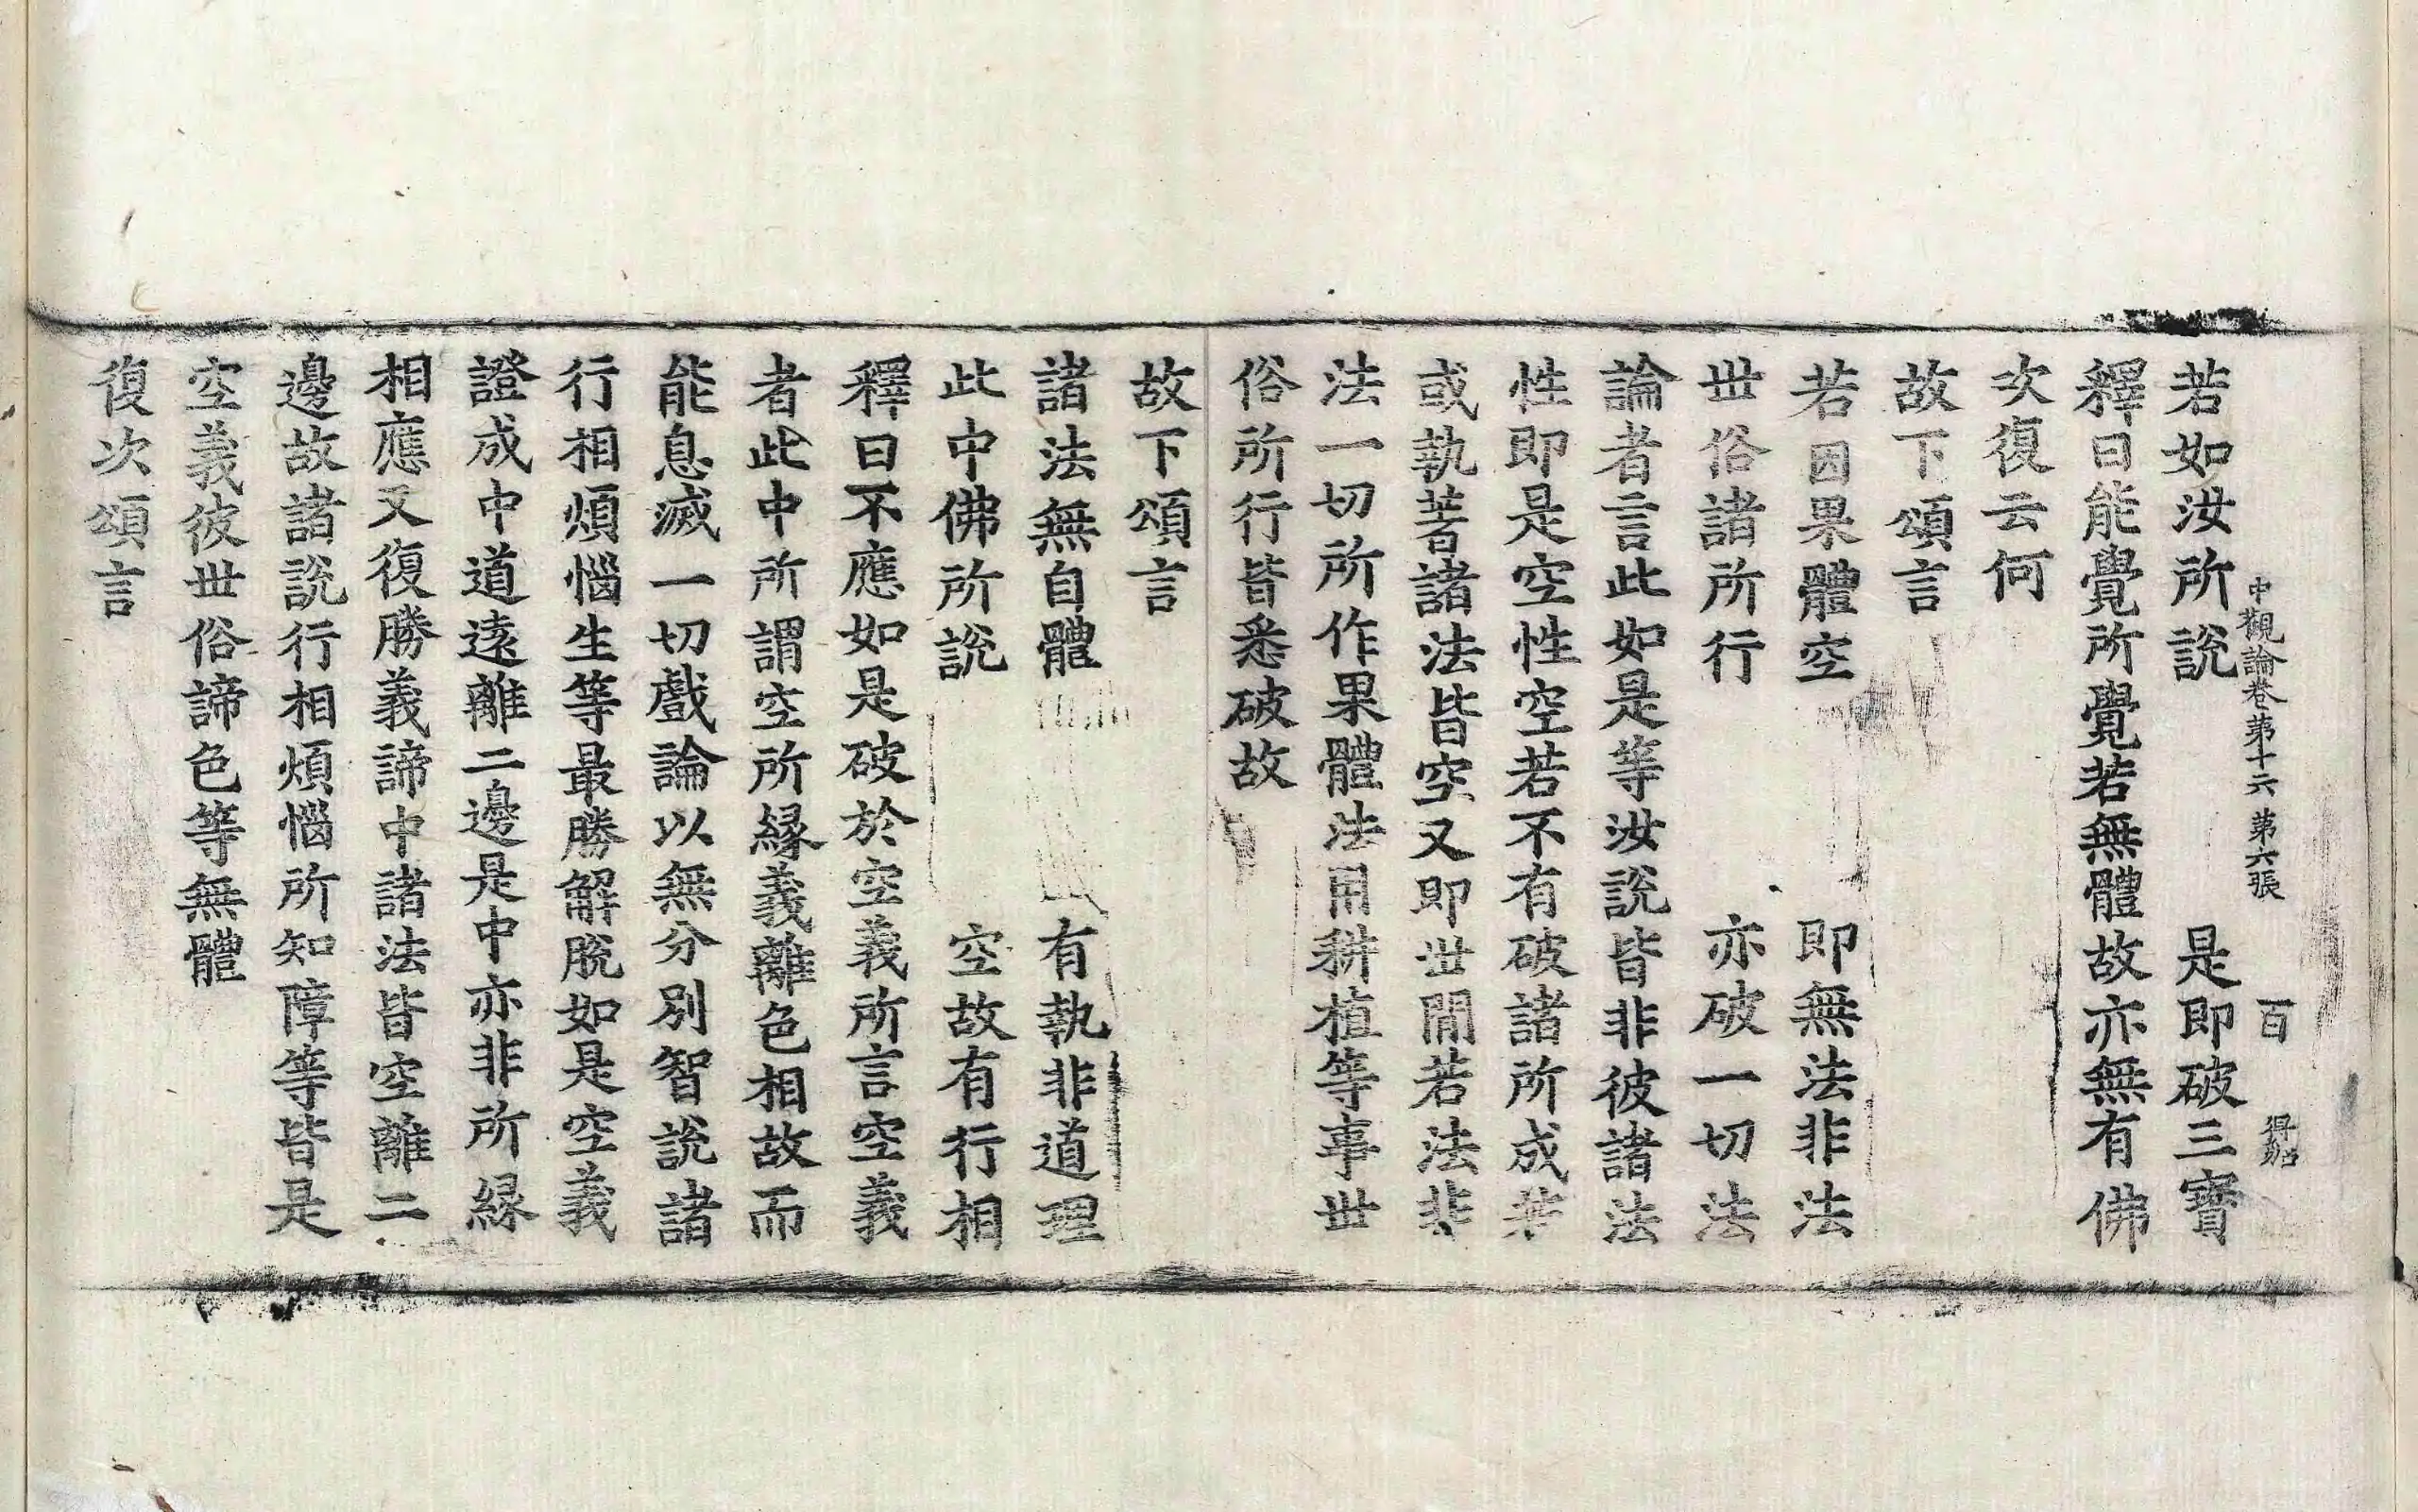 若如汝所說　是即破三寶
中觀論卷第十六　第六張　百
釋曰能覺所覺若無體故亦無有佛
次復云何
故下頌言
若因果體空　即無法非法
世俗諸所行　亦破一切法
論者言此如是等汝說皆非彼諸法
性即是空性空若不有破諸所成若
或執著諸法皆空又即世間若法非
法一切所作果體法用耕植等事世
俗所行皆悉破故
故下頌言
諸法無自體　有執非道理
此中佛所說　空故有行相
釋曰不應如是破於空義所言空義
者此中所謂空所緣義離色相故而
能息滅一切戲論以無分別智說諸
行相煩惱生等最勝解脫如是空義
證成中道遠離二邊是中亦非所緣
相應又復勝義諦中諸法皆空離二
邊故諸說行相煩惱所知障等皆是
空義彼世俗諦色等無體
復次頌言